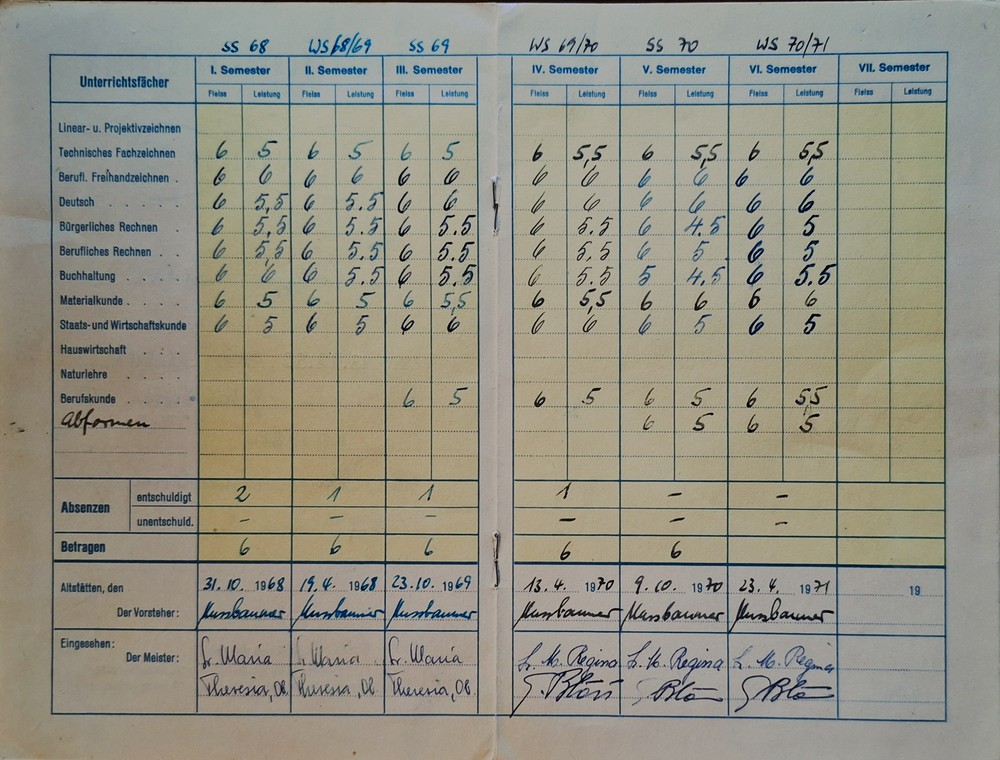 SS 68 WS 68/69 SS 69 WS 69/70 SS 70 WS 70/71
Unterrichtsfächer I. Semester II. Semester III. Semester IV. Semester V. Semester VI. Semester VII. Semester
Fleiss Leistung Fleiss Leistung Fleiss Leistung Fleiss Leistung Fleiss Leistung Fleiss Leistung Fleiss Leistung
Linear- u. Projektivzeichnen
Technisches Fachzeichnen 6 5 6 5 6 5 6 5,5 6 5,5 6 5,5
Berufl. Freihandzeichnen . 6 6 6 6 6 6 6 6 6 6 6 6
Deutsch . . . . . 6 5,5 6 5.5 6 6 6 6 6 6 6 6
Bürgerliches Rechnen . 6 5,5 6 5.5 6 5.5 6 5.5 6 4.5 6 5
Berufliches Rechnen . . 6 5,5 6 5.5 6 5.5 6 5,5 6 5 6 5
Buchhaltung . . . . 6 6 6 5.5 6 5.5 6 5.5 5 4.5 6 5.5
Materialkunde . . . . 6 5 6 5 6 5,5 6 5,5 6 6 6 6
Staats- und Wirtschaftskunde 6 5 6 5 6 6 6 6 6 5 6 5
Hauswirtschaft . . .
Naturlehre . . . .
Berufskunde . . . . 6 5 6 5 6 5 6 5,5
Abformen 6 5 6 5
Absenzen entschuldigt 2 1 1 1 - -
unentschuld. - - - - - -
Betragen 6 6 6 6 6
Altstätten, den 31. 10. 1968 19. 4. 1968 23. 10. 1969 13. 4. 1970 9. 10. 1970 23. 4. 1971 19
Der Vorsteher: Nussbaumer Nussbaumer Nussbaumer Nussbaumer Nussbaumer Nussbaumer
Eingesehen:
Der Meister: Sr. Maria Sr. Maria Sr. Maria Sr. M. Regina Sr. M. Regina Sr. M. Regina
Theresia, OB. Theresia, OB Theresia, OB.